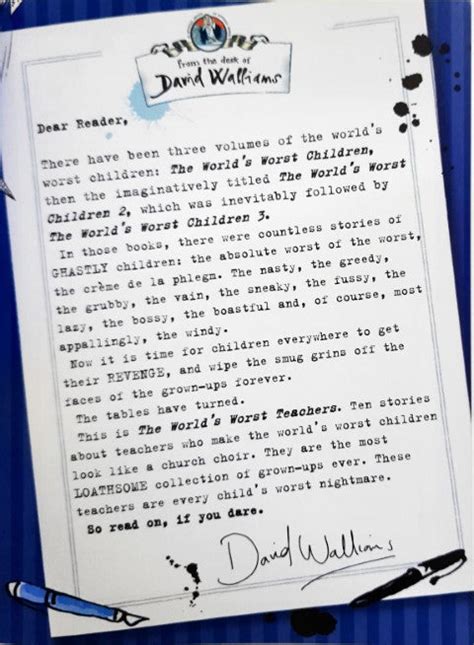 from the desk of
David Walliams
Dear Reader,
There have been three volumes of the world's
worst children: The World's Worst Children,
then the imaginatively titled The World's Worst
Children 2, which was inevitably followed by
The World's Worst Children 3.
In those books, there were countless stories of
GHASTLY children: the absolute worst of the worst,
the crème de la phlegm. The nasty, the greedy,
the grubby, the vain, the sneaky, the fussy, the
lazy, the bossy, the boastful and, of course, most
appallingly, the windy.
Now it is time for children everywhere to get
their REVENGE, and wipe the smug grins off the
faces of the grown-ups forever.
The tables have turned.
This is The World's Worst Teachers. Ten stories
about teachers who make the world's worst children
look like a church choir. They are the most
LOATHSOME collection of grown-ups ever. These
teachers are every child's worst nightmare.
So read on, if you dare.
David Walliams